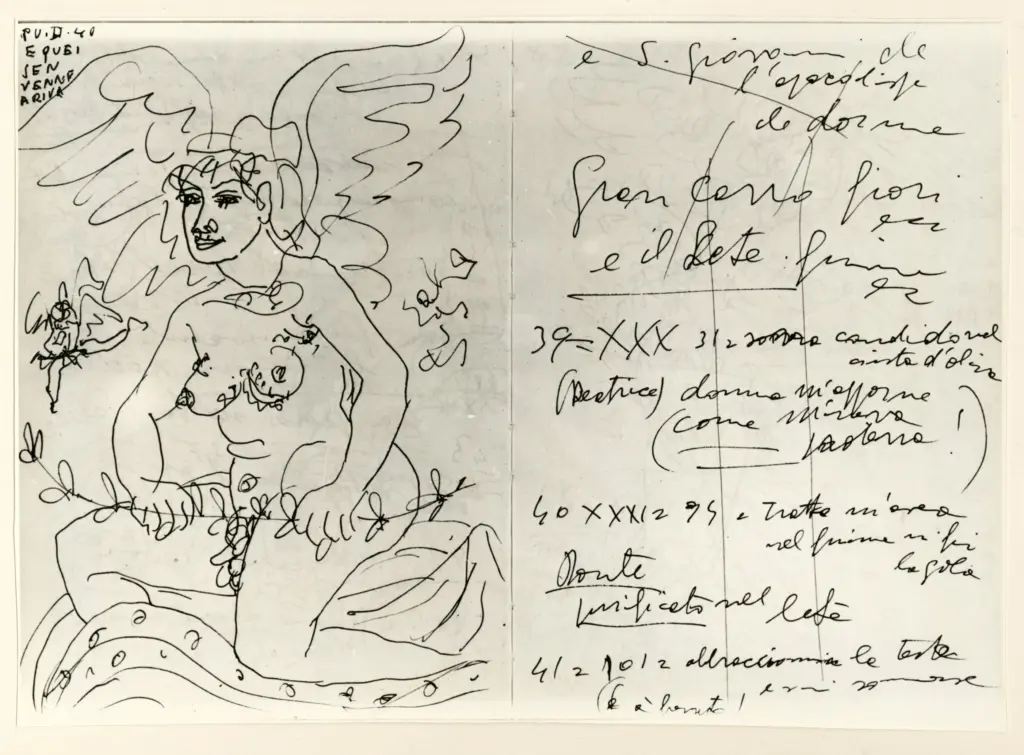 PU. II. 40
E QUEI
SEN
VENNE
A RIVA
e S. Giovanni de
l'apocalisse
de dorme
Gran Carro fiori
ecc
e il Lete. fiume
ecc
39 = XXX 31 = sovra candido vel
cinta d'oliva
(Beatrice) donna m'apparve
(come Minerva
!
40 XXXI = 94 = Tratto m'avea
nel fiume in fin
la gola
Dante
purificato nel Letè
41 = 101 = abbracciommi la testa
e mi sommerse
(E